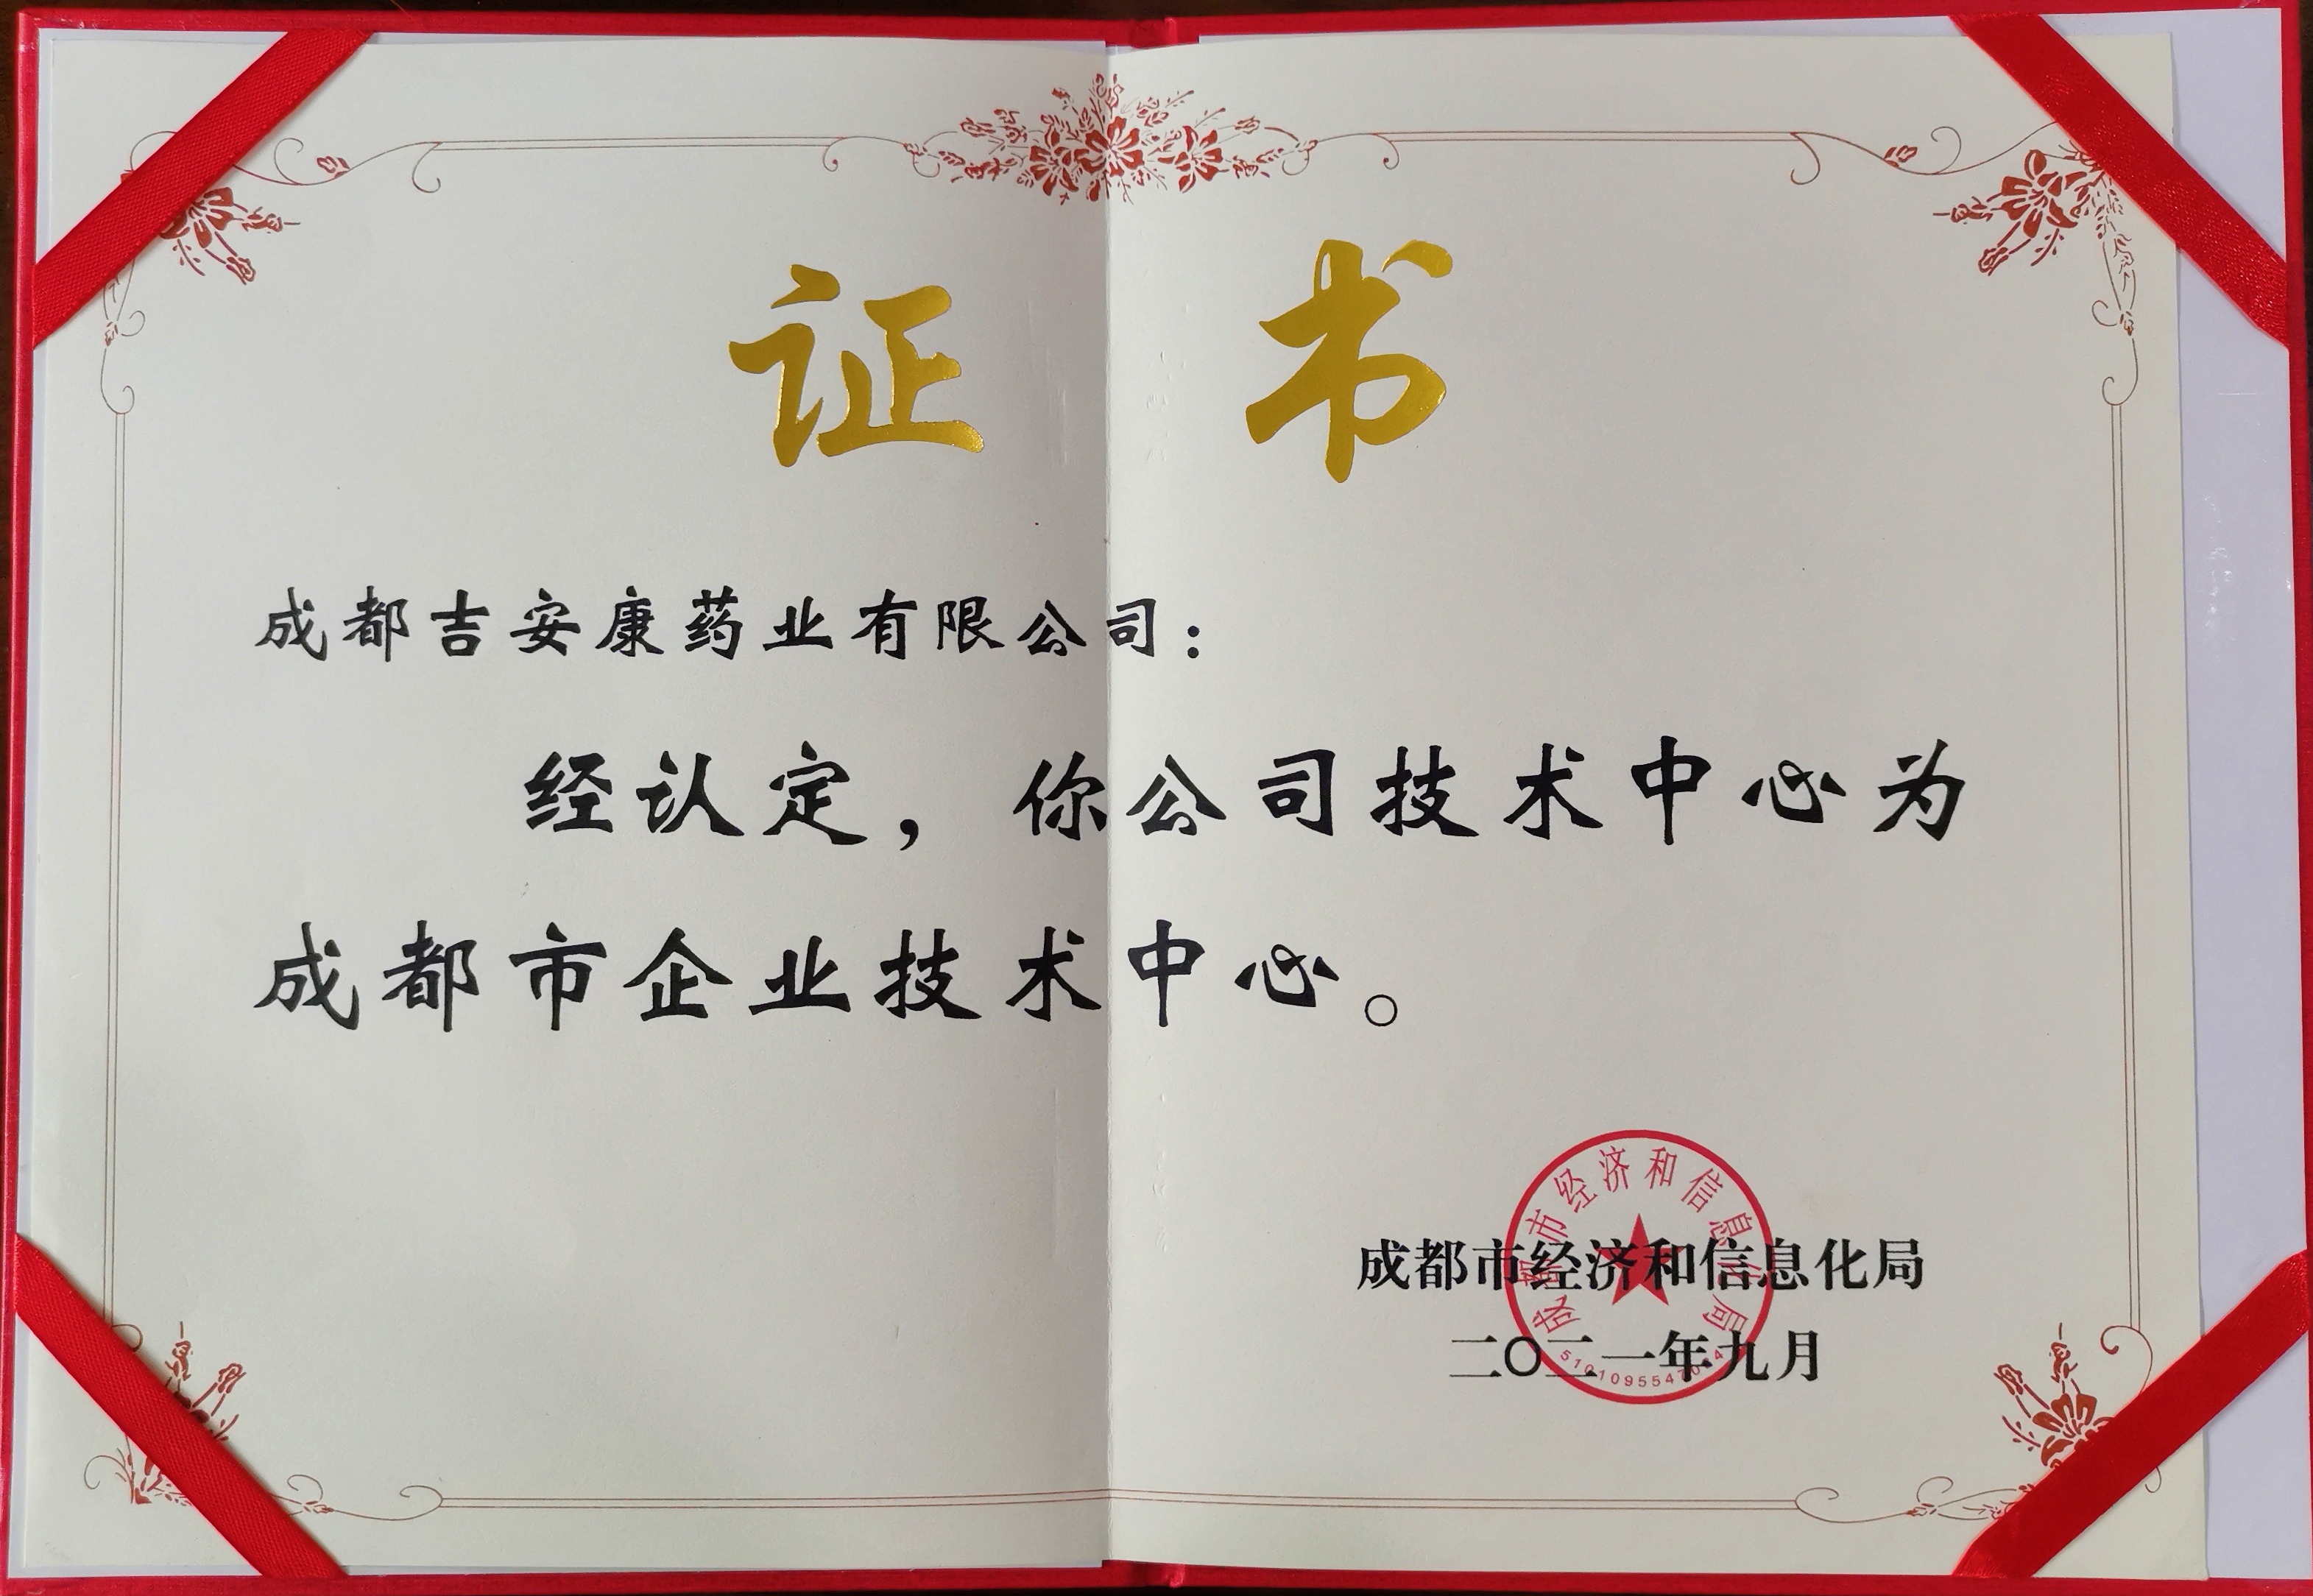 证书
成都吉安康药业有限公司：
经认定，你公司技术中心为
成都市企业技术中心。
成都市经济和信息化局
二〇二一年九月
成都市经济和信息化局